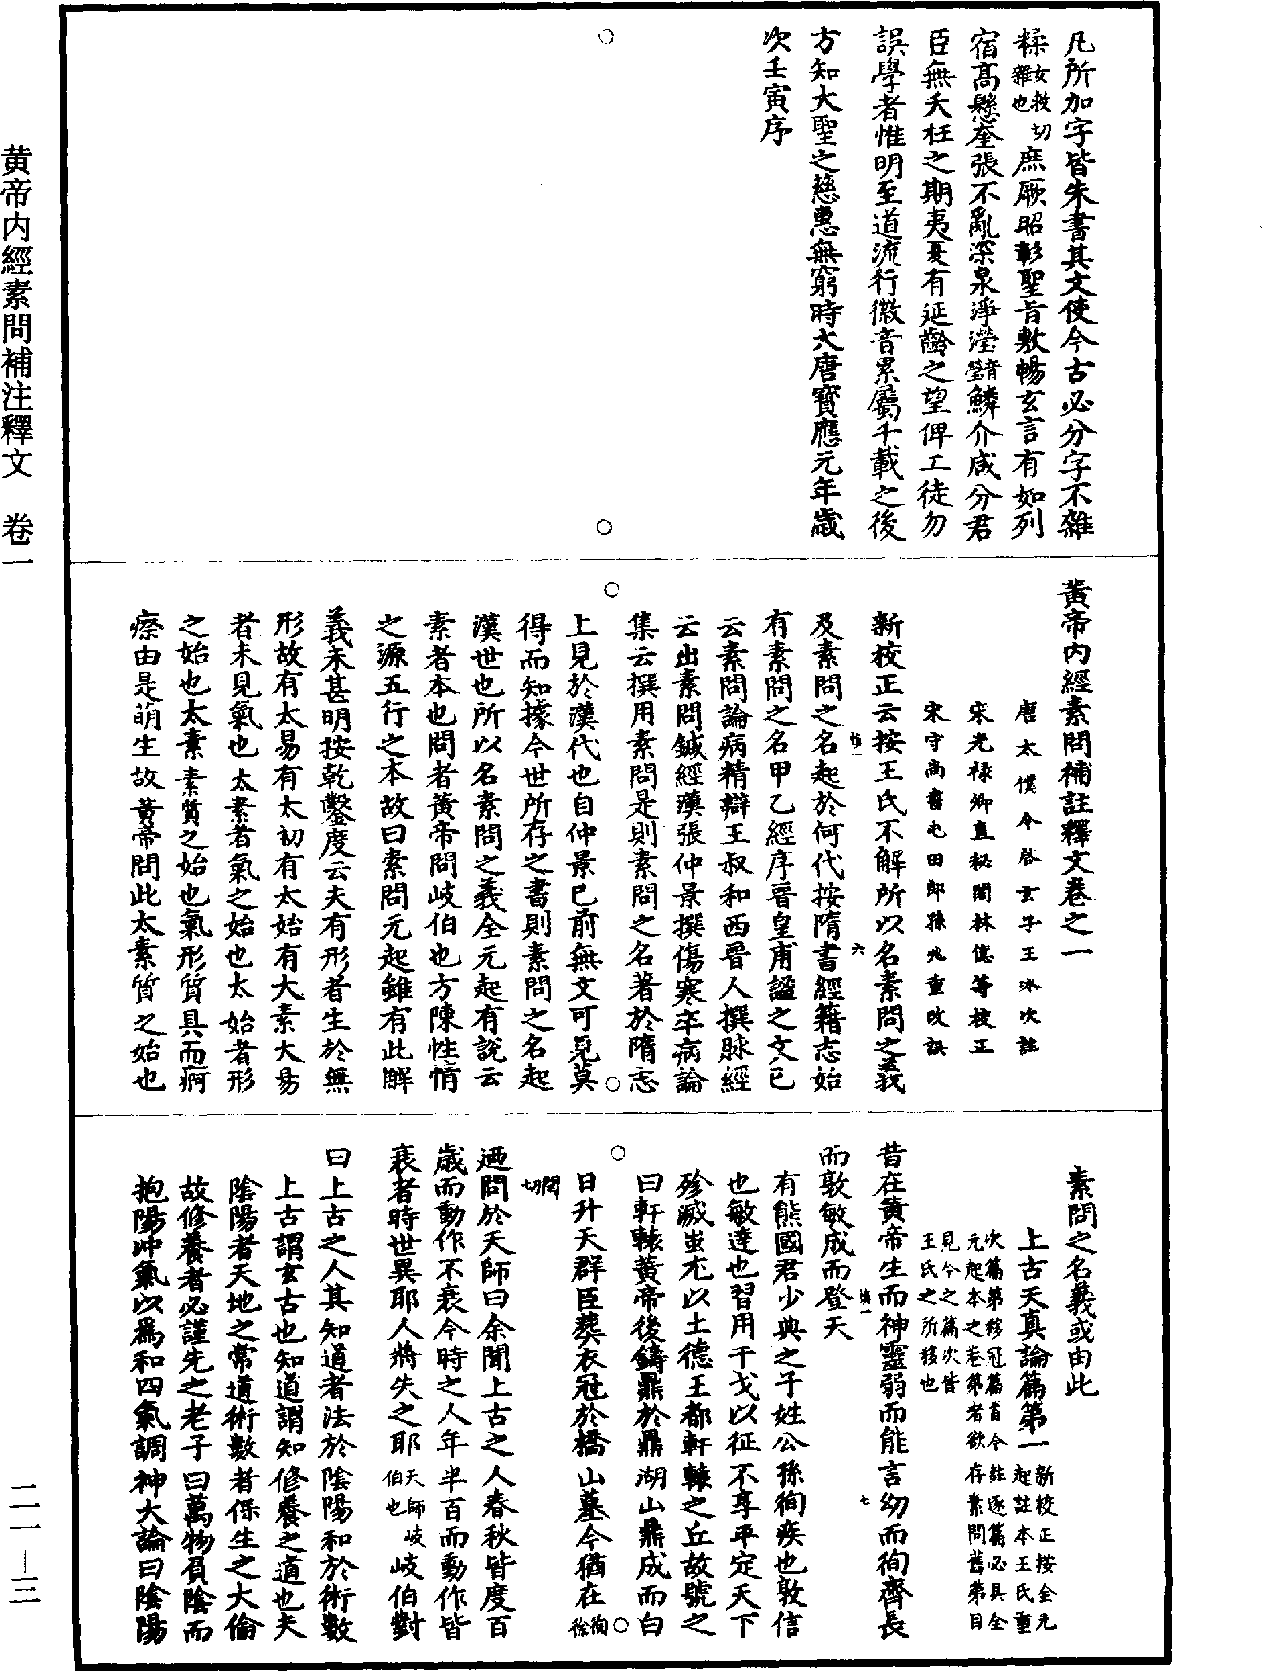 凡所加字皆朱書其文使今古必分字不雜
糅女救切雜也庶厥昭彰聖旨敷暢玄言有如列
宿高懸奎張不亂深泉淨瀅音瑩鱗介咸分君
臣無夭枉之期夷夏有延齡之望俾工徒勿
誤學者惟明至道流行徽音累屬千載之後
方知大聖之慈惠無窮時大唐寶應元年歲
次壬寅序
黃帝內經素問補註釋文卷之一
唐太僕令啓玄子王冰次註
宋光祿卿直秘閣林億等校正
宋守尚書屯田郎孫兆重改誤
新校正云按王氏不解所以名素問之義
及素問之名起於何代按隋書經籍志始
有素問之名甲乙經序晉皇甫謐之文已
云素問論病精辯王叔和西晉人撰脉經
云出素問鍼經漢張仲景撰傷寒卒病論
集云撰用素問是則素問之名著於隋志
上見於漢代也自仲景已前無文可見莫
得而知據今世所存之書則素問之名起
漢世也所以名素問之義全元起有說云
素者本也問者黃帝問岐伯也方陳性情
之源五行之本故曰素問元起雖有此解
義未甚明按乾鑿度云夫有形者生於無
形故有太易有太初有太始有大素大易
者未見氣也太素者氣之始也太始者形
之始也太素素質之始也氣形質具而痾
瘵由是萌生故黃帝問此太素質之始也
素問之名義或由此
上古天真論篇第一新校正按全元起註本王氏重
次篇第移冠篇首今註逐篇必具全元起本之卷第者欲存素問舊第目
見今之篇次皆王氏之所移也
昔在黃帝生而神靈弱而能言幼而徇齊長
而敦敏成而登天
有熊國君少典之子姓公孫徇疾也敦信
也敏達也習用干戈以征不享平定天下
殄滅蚩尤以土德王都軒轅之丘故號之
曰軒轅黃帝後鑄鼎於鼎湖山鼎成而白
日升天群臣葬衣冠於橋山墓今猶在徇徐
閏切
迺問於天師曰余聞上古之人春秋皆度百
歲而動作不衰今時之人年半百而動作皆
衰者時世異耶人將失之耶天師岐伯也岐伯對
曰上古之人其知道者法於陰陽和於術數
上古謂玄古也知道謂知修養之道也夫
陰陽者天地之常道術數者保生之大倫
故修養者必謹先之老子曰萬物負陰而
抱陽冲氣以爲和四氣調神大論曰陰陽
黃帝内經素問補注釋文　卷一
二一—三